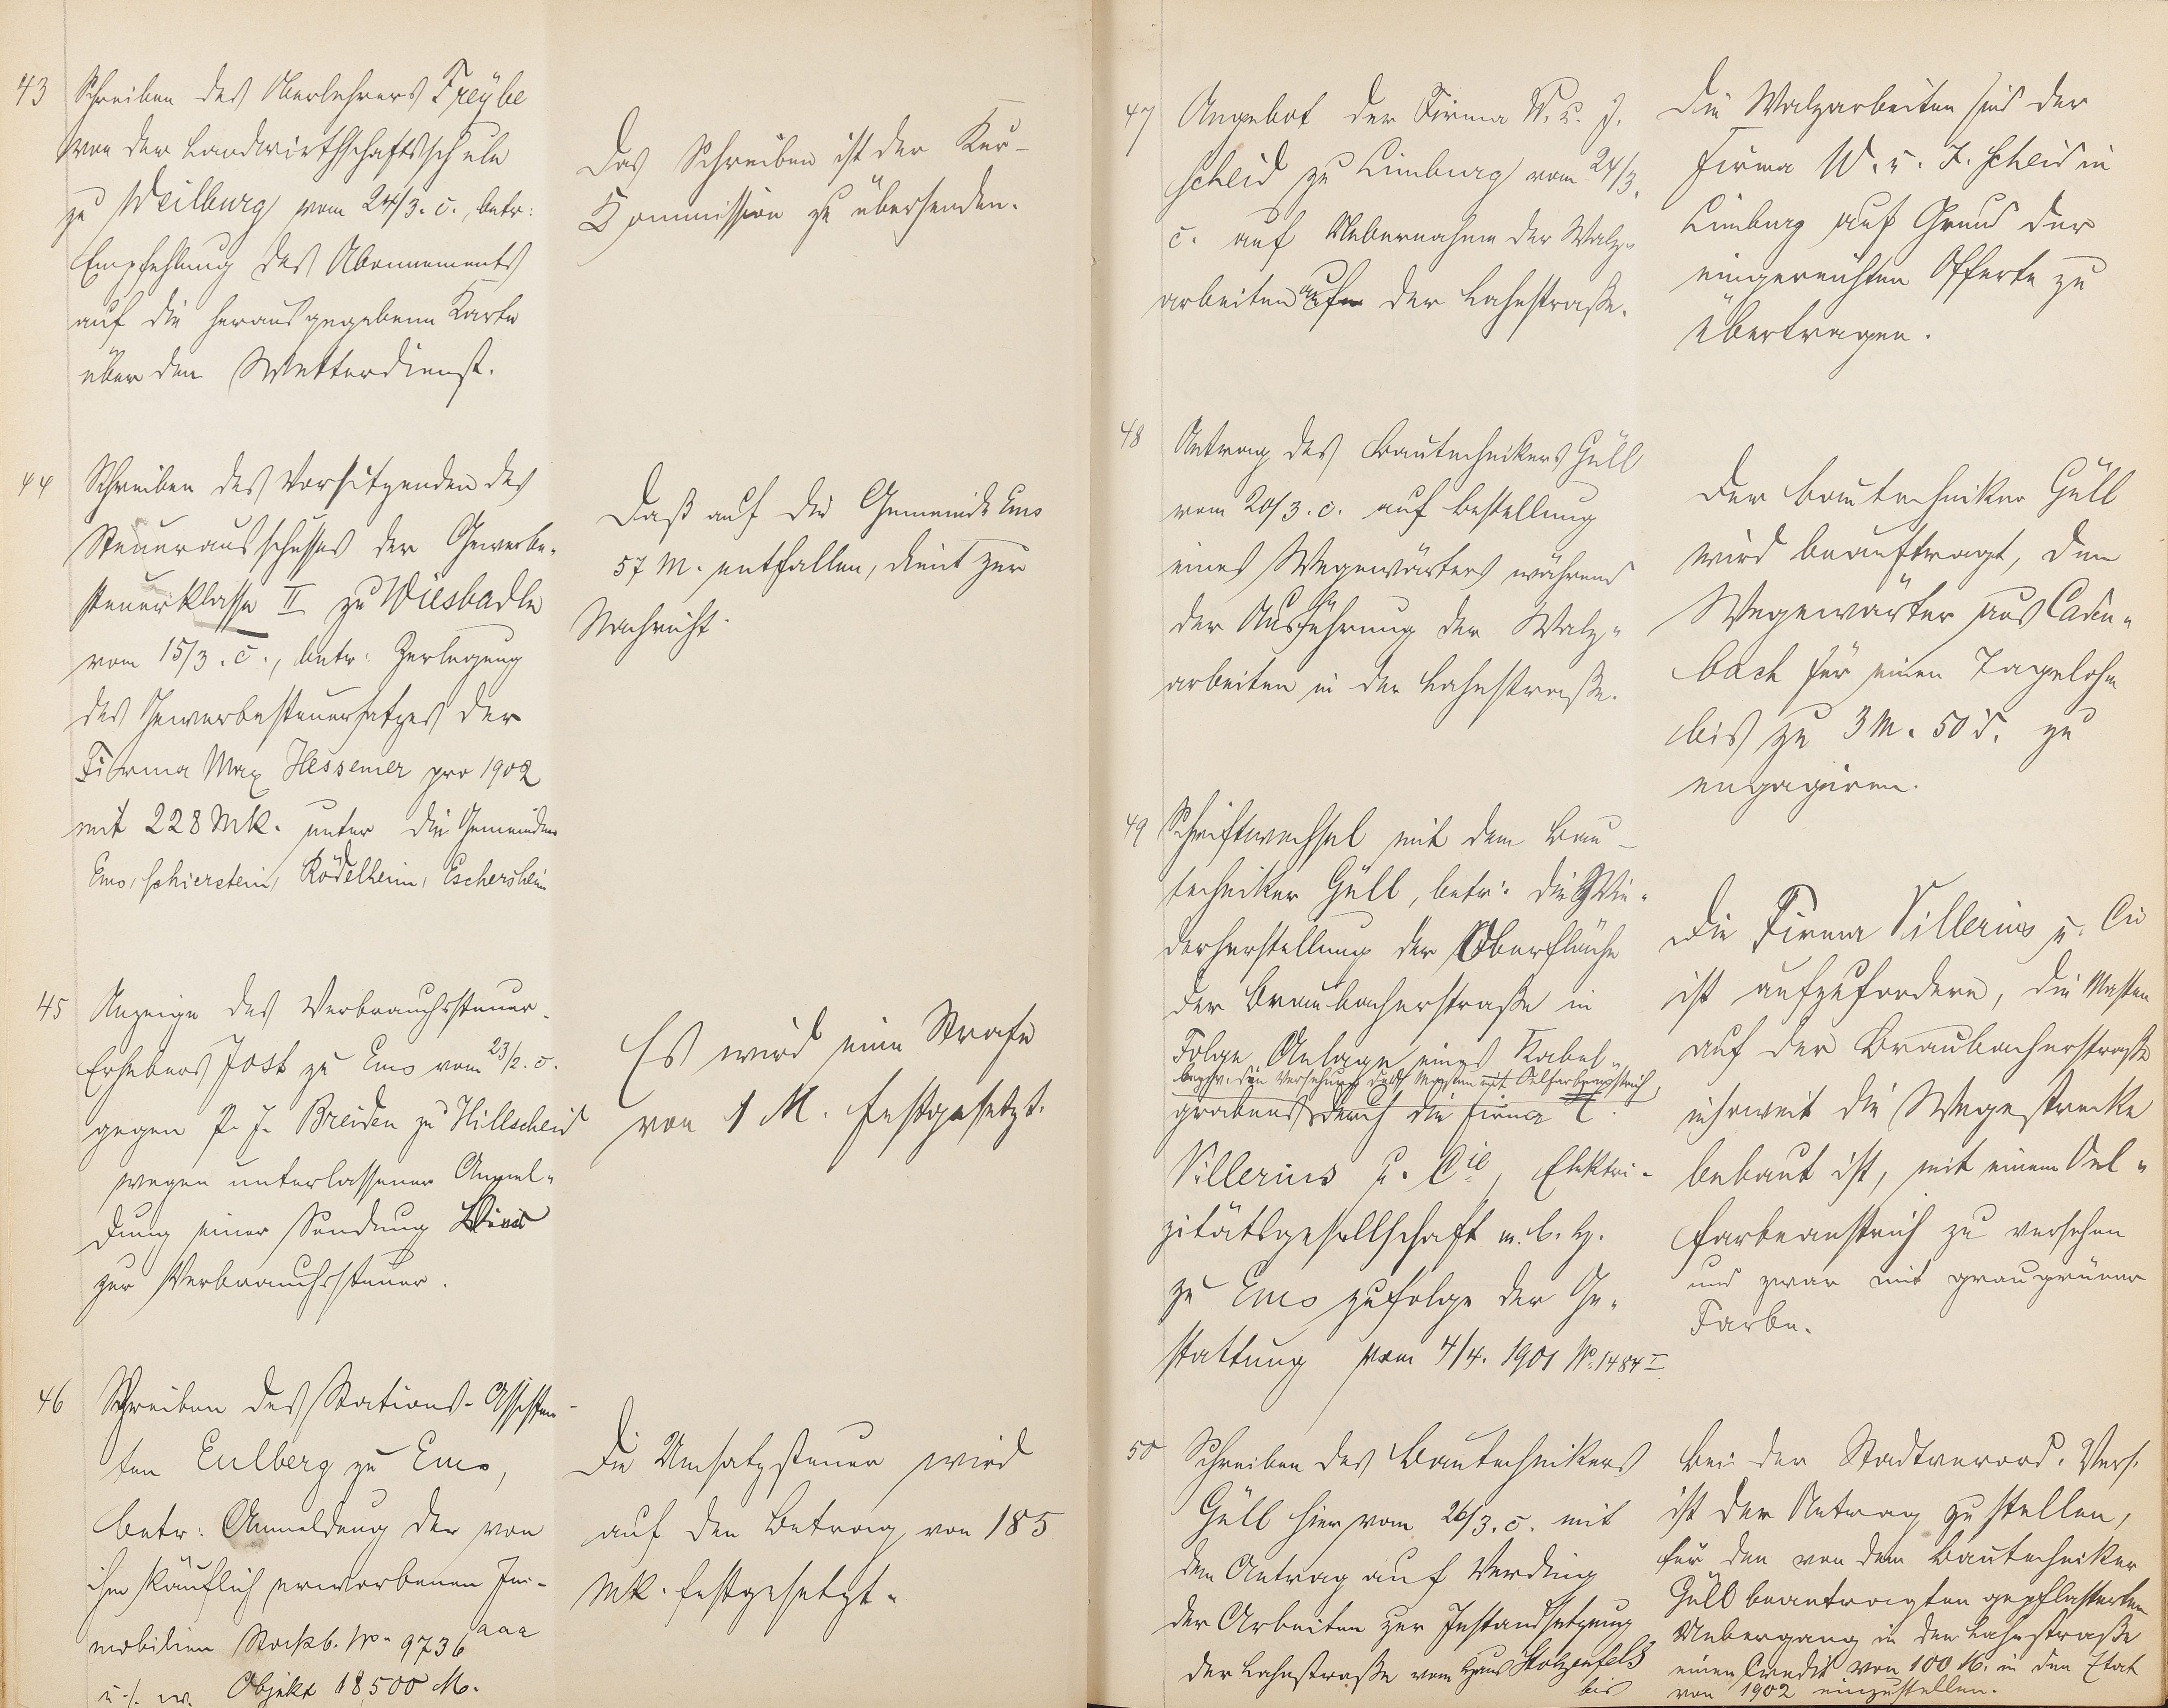 43 Schreiben des Oberlehrers Freybe
von der Landwirthschaftsschule
zu Weilburg vom 24/3. c., betr:
Empfehlung des Abonnements
auf die herausgegebene Karte
über den Wetterdienst.
Das Schreiben ist der Kur-
Kommission zu übersenden.
44 Schreiben des Vorsitzenden des
Steuerausschusses der Gewerbe-
steuerklasse II zu Wiesbaden
vom 15/3. c., betr: Zerlegung
des Gewerbesteuersatzes der
Firma Max Hessemer pro 1902
mit 228 Mk. unter die Gemeinden
Ems, Schierstein, Rödelheim, Eschersheim
Daß auf die Gemeinde Ems
57 M. entfallen, dient zur
Nachricht.
45 Anzeige des Verbrauchssteuer-
Erhebers Jost zu Ems vom 23/2. c.
gegen P. J. Breiden zu Hillscheid
wegen unterlassener Anmel-
dung einer Sendung Wein
zur Verbrauchssteuer.
Es wird eine Strafe
von 1 M. festgesetzt.
46 Schreiben des Stations-Assisten-
ten Eulberg zu Ems,
betr: Anmeldung der von
ihm käuflich erworbenen Im-
mobilien Stockb. No. 9736 aaa
u. s. w. Objekt 18,500 M.
Die Umsatzsteuer wird
auf den Betrag von 185
Mk. festgesetzt.
47 Angebot der Firma W. u. J.
Scheid zu Limburg vom 24/3.
c. auf Uebernahme der Walz-
arbeiten auf der Lahnstraße.
Die Walzarbeiten sind der
Firma W. u. J. Scheid in
Limburg auf Grund der
eingereichten Offerte zu
übertragen.
48 Antrag des Bautechnikers Güll
vom 20/3. c. auf Bestellung
eines Wegewärters während
der Ausführung der Walz-
arbeiten in der Lahnstraße.
Der Bautechniker Güll
wird beauftragt, den
Wegewärter aus Caden-
bach für einen Tagelohn
bis zu 3 M. 50 d. zu
engagiren.
49 Schriftwechsel mit dem Bau-
techniker Güll, betr: die Wie-
derherstellung der Oberfläche
der Braubacherstraße in
Folge Anlage eines Kabel-
bezw. die Versehung der Masten mit Oelfarbanstrich,
grabens durch die Firma C.
Villerius u. Cie, Elektri-
zitätsgesellschaft m. b. H.
zu Ems zufolge der Ge-
stattung vom 4/4. 1901 No. 1484 I
Die Firma Villerius u. Cie
ist aufzufordern, die Masten
auf der Braubacherstraße
inwieweit die Wegestrecke
bebaut ist, mit einem Oel-
farbeanstrich zu versehen
und zwar mit graugrüner
Farbe.
50 Schreiben des Bautechnikers
Güll hier vom 26/3. c. mit
dem Antrag auf Verding
der Arbeiten zur Instandsetzung
der Lahnstraße vom Haus Stolzenfels
bis
Bei der Stadtverord. Vers.
ist der Antrag zu stellen,
für den von dem Bautechniker
Güll beantragten gepflasterten
Uebergang in der Lahnstraße
einen Credit von 100 M. in den Etat
von 1902 einzustellen.